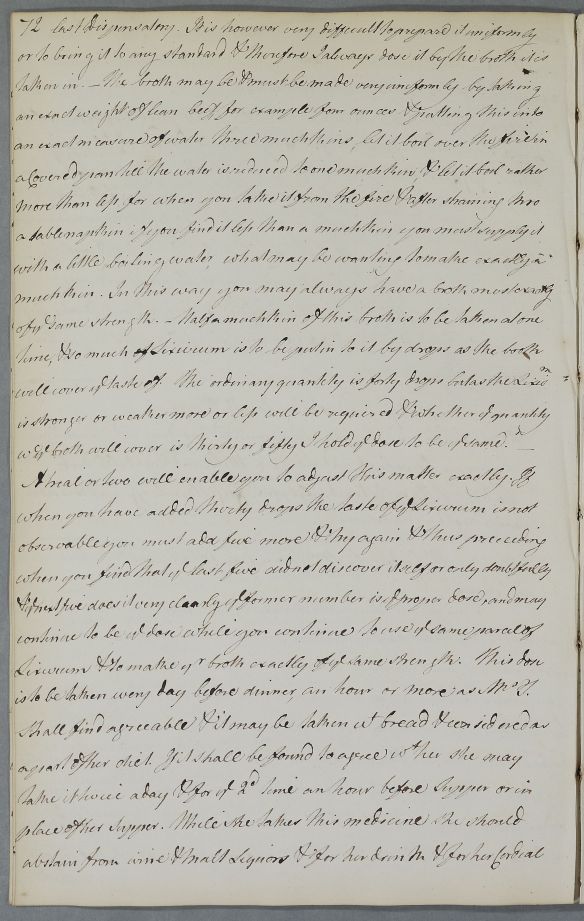 72 last Dispensatory. It is however very difficult to prepare it uniformly
or to bring it to any standard & therefore I always dose it by the broth it is
taken in. – The broth may be & must be made very uniformly by taking
an exact weight of lean beef for example four ounces & putting this into
an exact measure of water three muchkins, let it boil over the fire in
a Covered pan till the water is reduced to one muchkin, & let it boil rather
more than less, for when you take it from the fire & after straining thro
a table napkin if you find it less than a muchkin you must supply it
with a little boiling water, what may be wanting to make exactly a
muchkin. In this way you may always have a broth most exactly
of ye same strength. – Half a muchkin of this broth is to be taken at one
time, & so much of Lixivium is to be put in to it by drops as the broth
will cover ye taste of. The ordinary quantity is forty drops but as the Lixivm
is stronger or weaker more or less will be required & whether ye quantity
wc ye broth will cover is thirty or fifty I hold ye dose to be ye same. –
A trial or two will enable you to adjust this matter exactly. If
when you have added thirty drops the taste of ye Lixivium is not
observable you must add five more & try again & thus proceeding
when you find that ye last five did not discover itself or only doubtfully
& ye next five does it very clearly ye former number is ye proper dose, and may
continue to be ye dose while you continue to use ye same parcel of
Lixivium & to make yr broth exactly of ye same strength. This dose
is to be taken every day before dinner, an hour or more as Mrs Y.
shall find agreeable & it may be taken wt bread & considered as
a part of her diet. If it shall be found to agree wt her she may
take it twice a day & for ye 2d time an hour before supper or in
place of her supper. While she takes this medicine she should
abstain from wine & malt Liquors & for her drink & for her Cordial